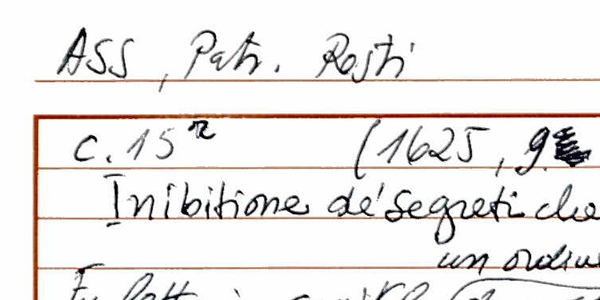 ASS, Patr. Resti
c. 15 r (1625, 9
Inibitione de' segreti che
un ordin
Fu letta in